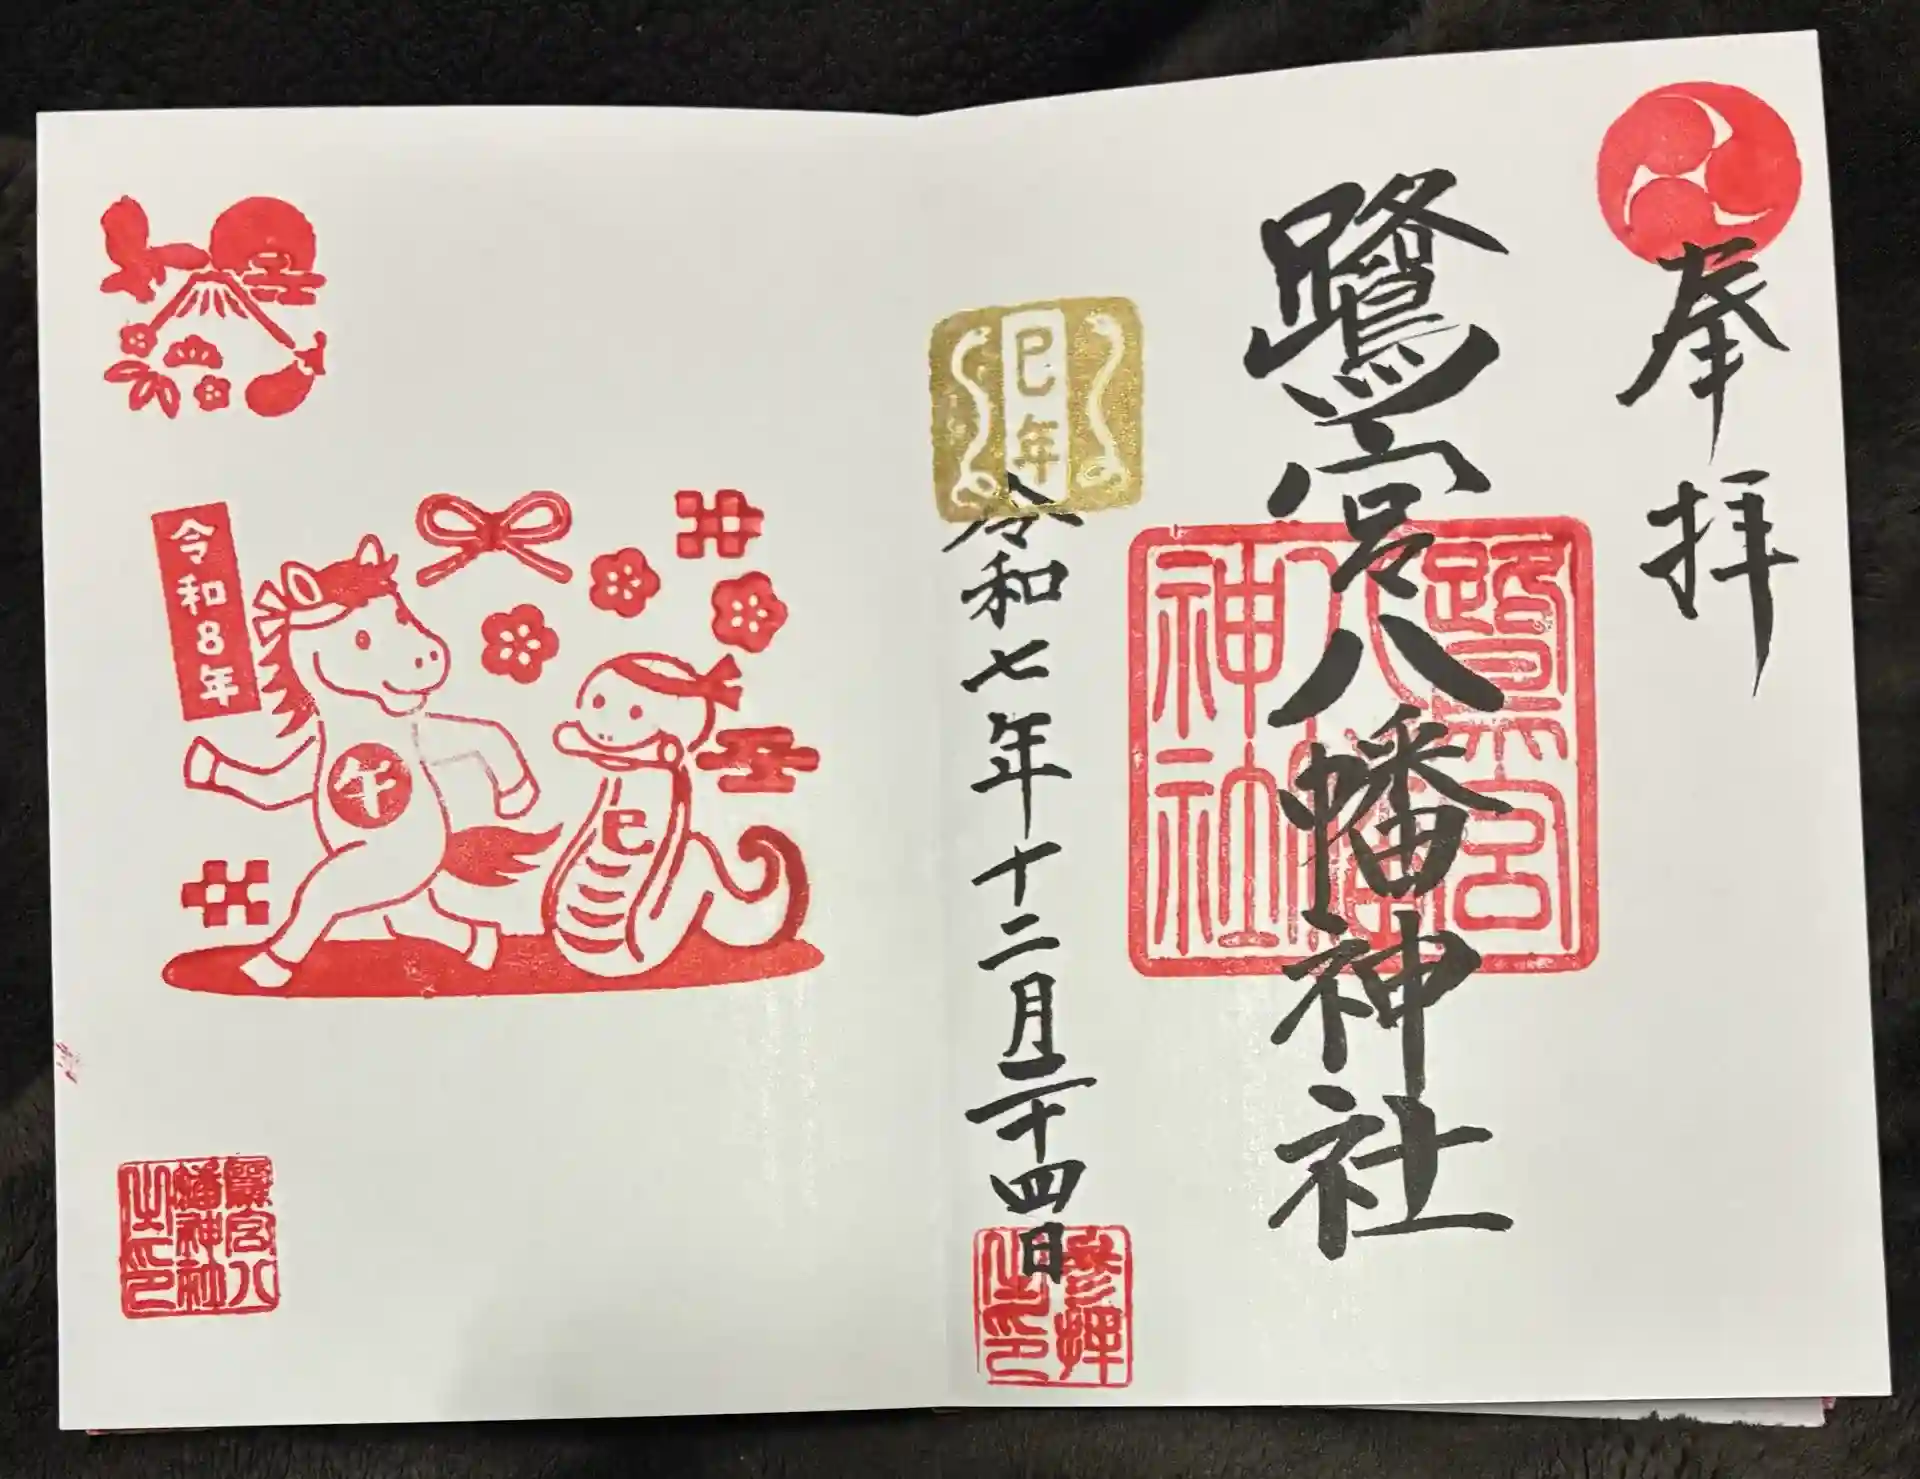 奉拝
鷺宮八幡神社
鷺宮
八幡
神社
巳年
令和七年十二月二十四日
参拝
之印
令和8年
午
巳
鷺宮八
幡神社
之印